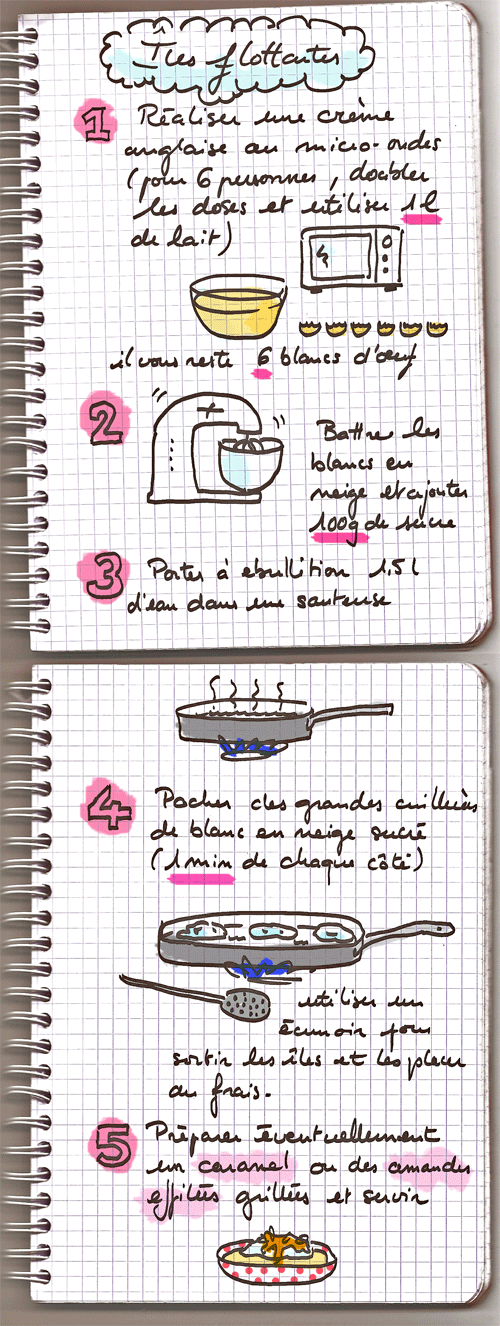 Îles flottantes
1 Réaliser une crème
anglaise au micro-ondes
(pour 6 personnes, doubler
les doses et utiliser 1 l
de lait)
il vous reste 6 blancs d'œuf
2
Battre les
blancs en
neige et ajouter
100g de sucre
3 Porter à ebullition 1,5 l
d'eau dans une sauteuse
4 Pocher des grandes cuillères
de blanc en neige sucré
(1 min de chaque côté)
utiliser un
écumoir pour
sortir les îles et les placer
au frais.
5 Préparer éventuellement
un caramel ou des amandes
effilées grillées et servir